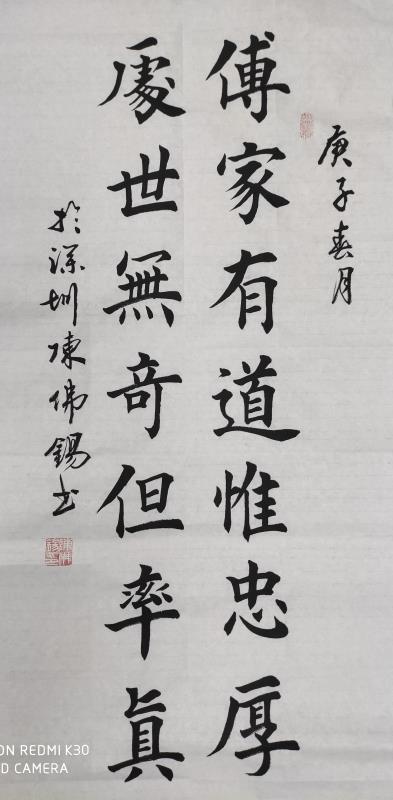 庚子春月
傅家有道惟忠厚
處世無奇但率真
於深圳陳錫书
ON REDMI K30
D CAMERA